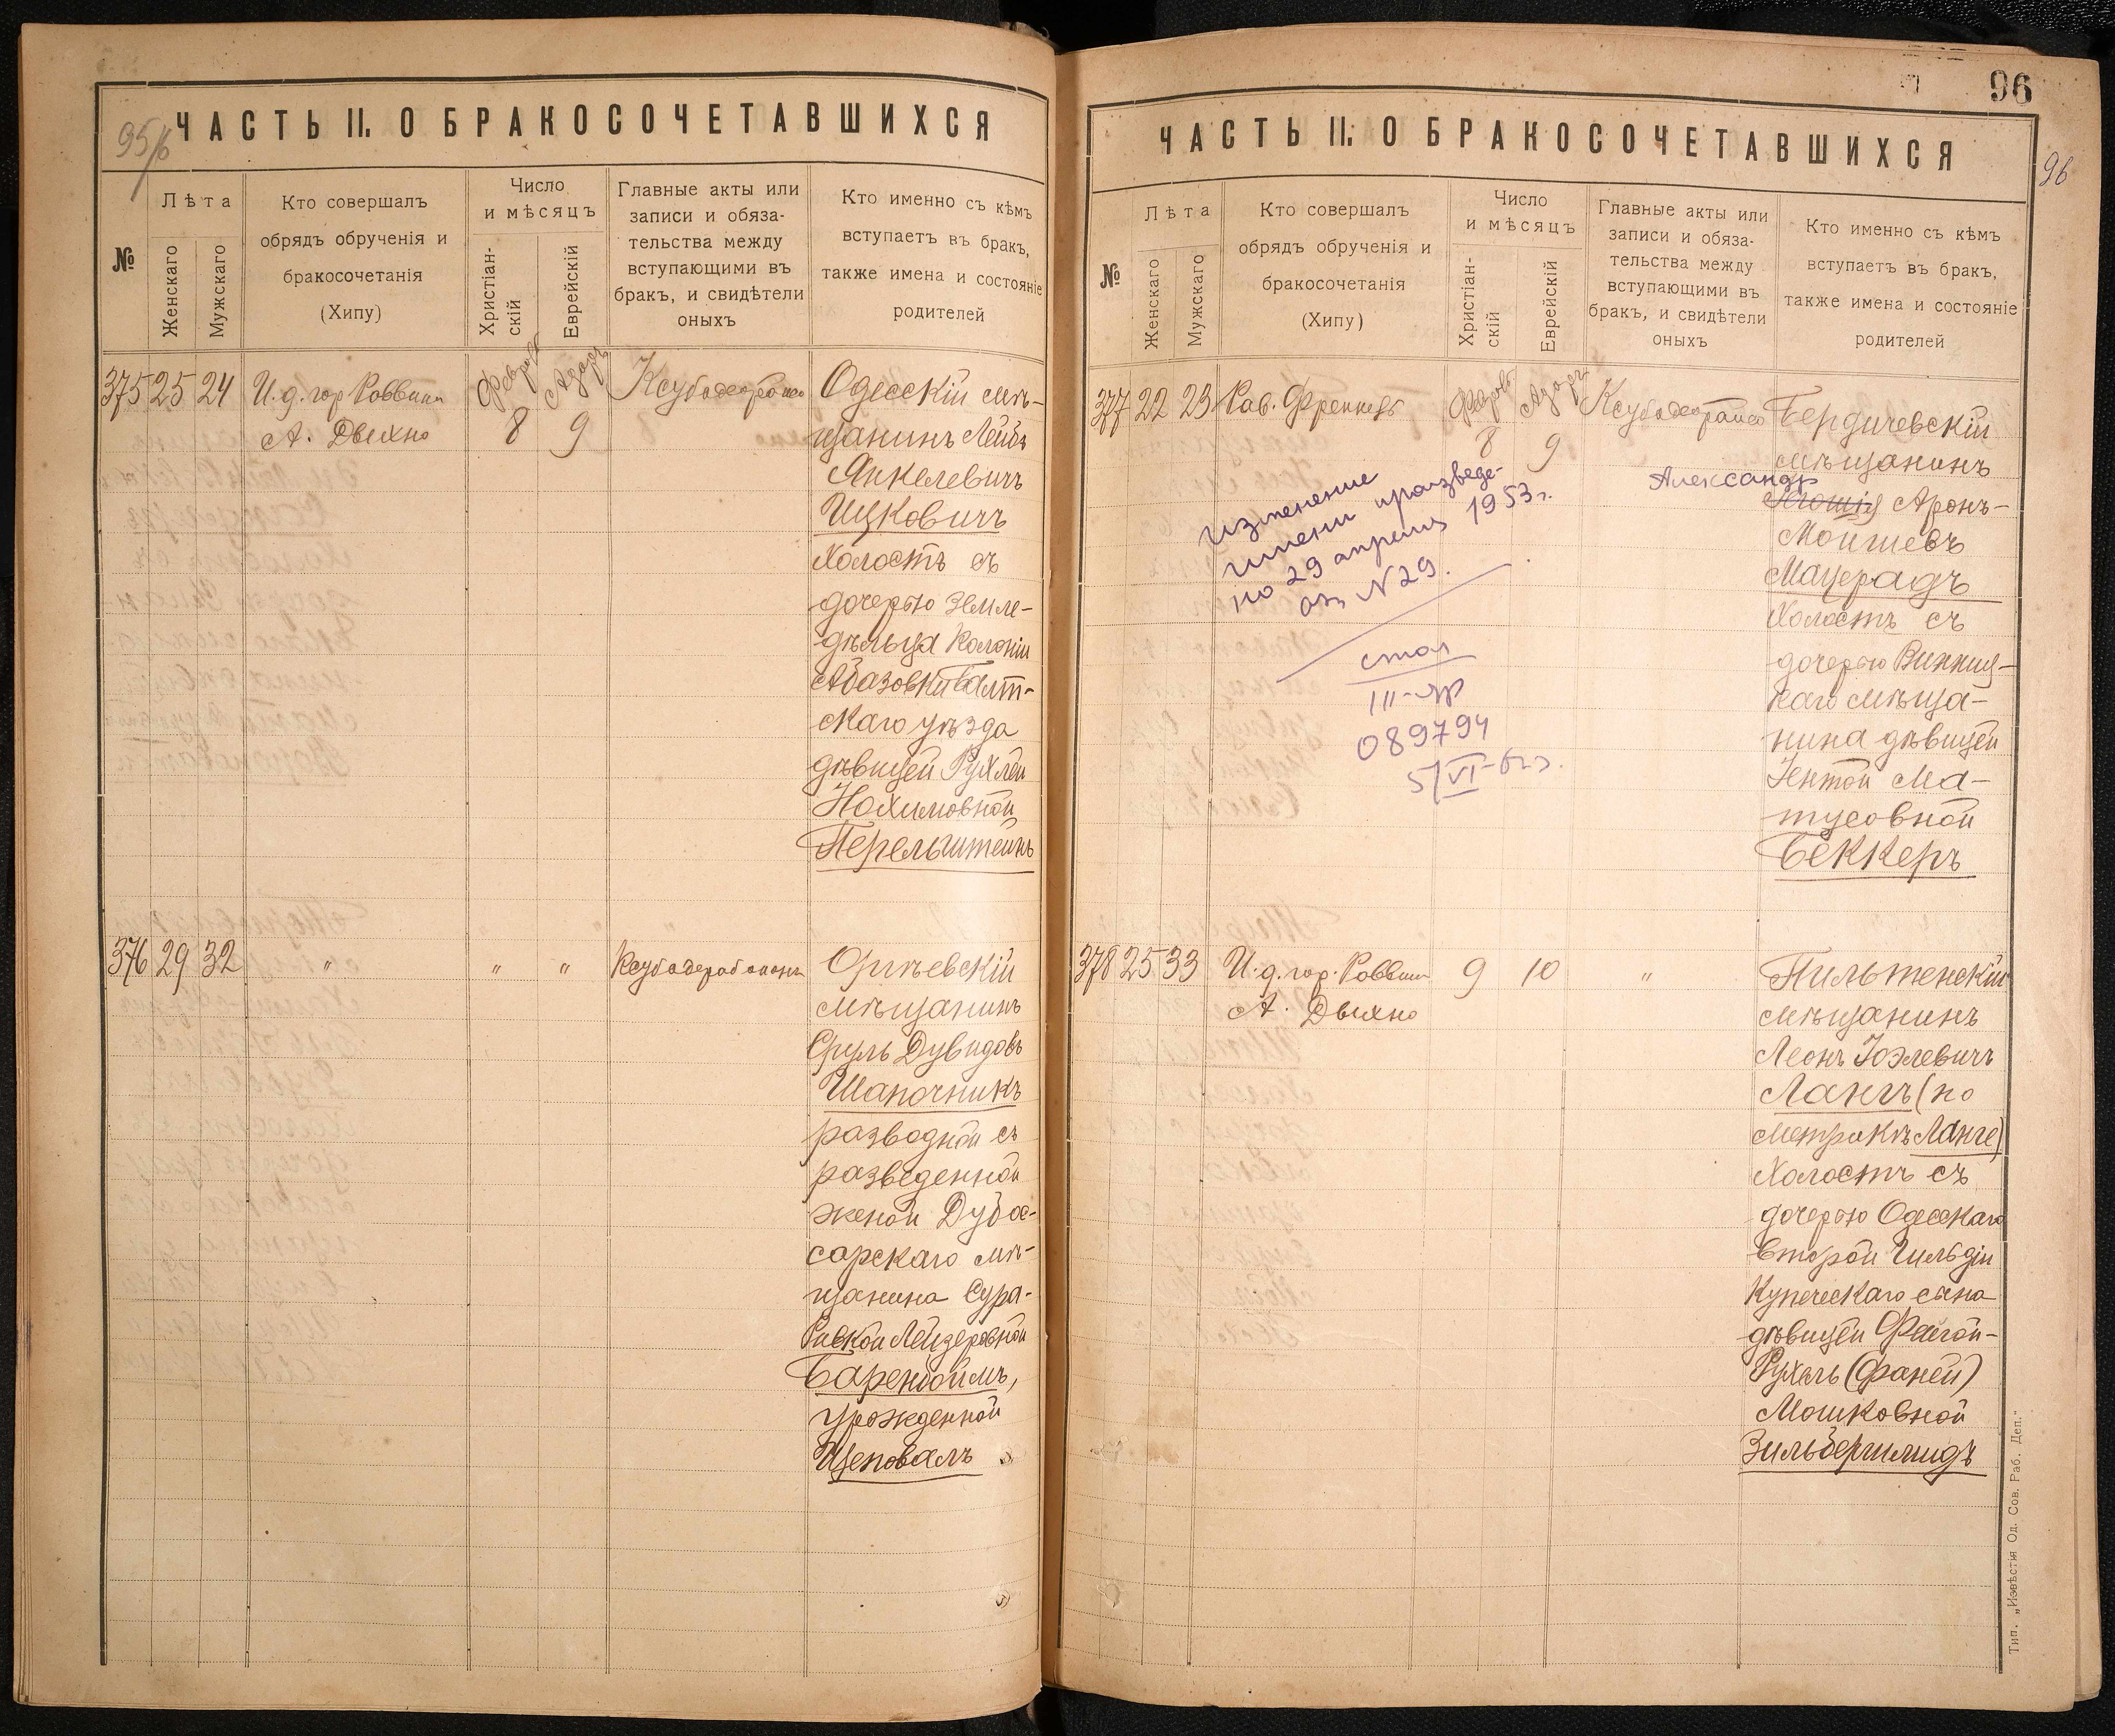 95/б
ЧАСТЬ II. О БРАКОСОЧЕТАВШИХСЯ
№
Лѣта
Женскаго
Мужскаго
Кто совершалъ
обрядъ обрученія и
бракосочетанія
(Хипу)
Число
и мѣсяцъ
Христіан-
скій
Еврейскій
Главные акты или
записи и обяза-
тельства между
вступающими въ
бракъ, и свидѣтели
оныхъ
Кто именно съ кѣмъ
вступаетъ въ бракъ,
также имена и состояніе
родителей
375 25 24 И. д. гор Раввина
А. Двихно
8 9
Одесскій мѣ-
щанинъ Лейбъ
Янкелевичъ
Ицковичъ
холостъ съ
дочерью земле-
дѣльца колоніи
Абазовки Балт-
скаго уѣзда
дѣвицей Рухлей
Нохимовной
Перельштейнъ
376 29 32 " " "
Оргѣевскій
мѣщанинъ
Сруль Дувидовъ
Шапочникъ
разводной съ
разведенной
женой Дубос-
сарскаго мѣ-
щанина Сура-
Ривкой Лейзеровной
Баренбоймъ,
урожденной
Щеповалъ
96
96
ЧАСТЬ II. О БРАКОСОЧЕТАВШИХСЯ
№
Лѣта
Женскаго
Мужскаго
Кто совершалъ
обрядъ обрученія и
бракосочетанія
(Хипу)
Число
и мѣсяцъ
Христіан-
скій
Еврейскій
Главные акты или
записи и обяза-
тельства между
вступающими въ
бракъ, и свидѣтели
оныхъ
Кто именно съ кѣмъ
вступаетъ въ бракъ,
также имена и состояніе
родителей
377 22 23 Рав. Френкель
8 9
Бердичевскій
мѣщанинъ
Александр
Аронъ-
Моишевъ
Мацерадъ
холостъ съ
дочерью Винниц-
каго мѣща-
нина дѣвицей
Ентой Ма-
тусовной
Беккеръ
изменение
имени произведе-
но 29 апреля 1953 г.
N 29.
089794
378 25 33 И. д. гор. Раввина
А. Двихно
9 10 "
Пильтенскій
мѣщанинъ
Леонъ Іоэлевичъ
Лангъ (по
метрикѣ Ланге)
холостъ съ
дочерью Одесскаго
второй гильдіи
купеческаго сына
дѣвицей Фейгой-
Рухель (Фаней)
Мошковной
Зильбершмидъ
Тип. „Извѣстія Од. Сов. Раб. Деп.“